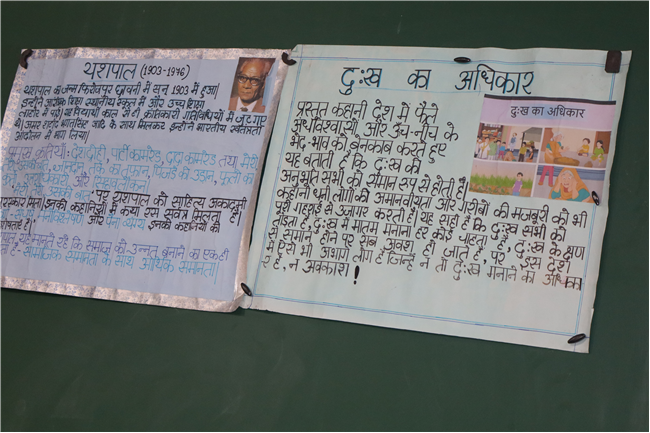 यशपाल (1903-1976)
यशपाल का जन्म फिरोजपुर छावनी में सन् 1903 में हुआ।
इन्होंने आरंभिक शिक्षा स्थानीय स्कूल में और उच्च शिक्षा
लाहौर में पाई। यशपाल विद्यार्थी काल से ही क्रांतिकारी गतिविधियों में जुट गए
थे। अमर शहीद भगतसिंह आदि के साथ मिलकर इन्होंने भारतीय स्वतंत्रता
आंदोलन में भाग लिया।
कृतियाँ:- देशद्रोही, पार्टी कामरेड, दादा कामरेड तथा मेरी
तूफान, पिंजड़े की उड़ान, फूलों का
और
पर यशपाल को साहित्य अकादमी
पुरस्कार मिला। इनकी कहानियों में कथा रस सर्वत्र मिलता है।
और इनकी कहानियों की
मानते रहे कि समाज को उन्नत बनाने का एक ही
सामाजिक समानता के साथ आर्थिक समानता।
दुःख का अधिकार
प्रस्तुत कहानी देश में फैले
अंधविश्वासों और ऊँच-नीच के
भेद-भाव को बेनकाब करते हुए
यह बताती है कि दुःख की
अनुभूति सभी को समान रूप से होती है।
कहानी धनी लोगों की अमानवीयता और गरीबों की मजबूरी को भी
पूरी गहराई से उजागर करती है। यह सही है कि दुःख सभी को
तोड़ता है, दुःख में मातम मनाना हर कोई चाहता है, दुःख के क्षण
से सामना होने पर सब अवश हो जाते हैं, पर इस देश
में ऐसे भी अभागे लोग हैं जिन्हें न तो दुःख मनाने का अधिकार
है, न अवकाश!
दुःख का अधिकार